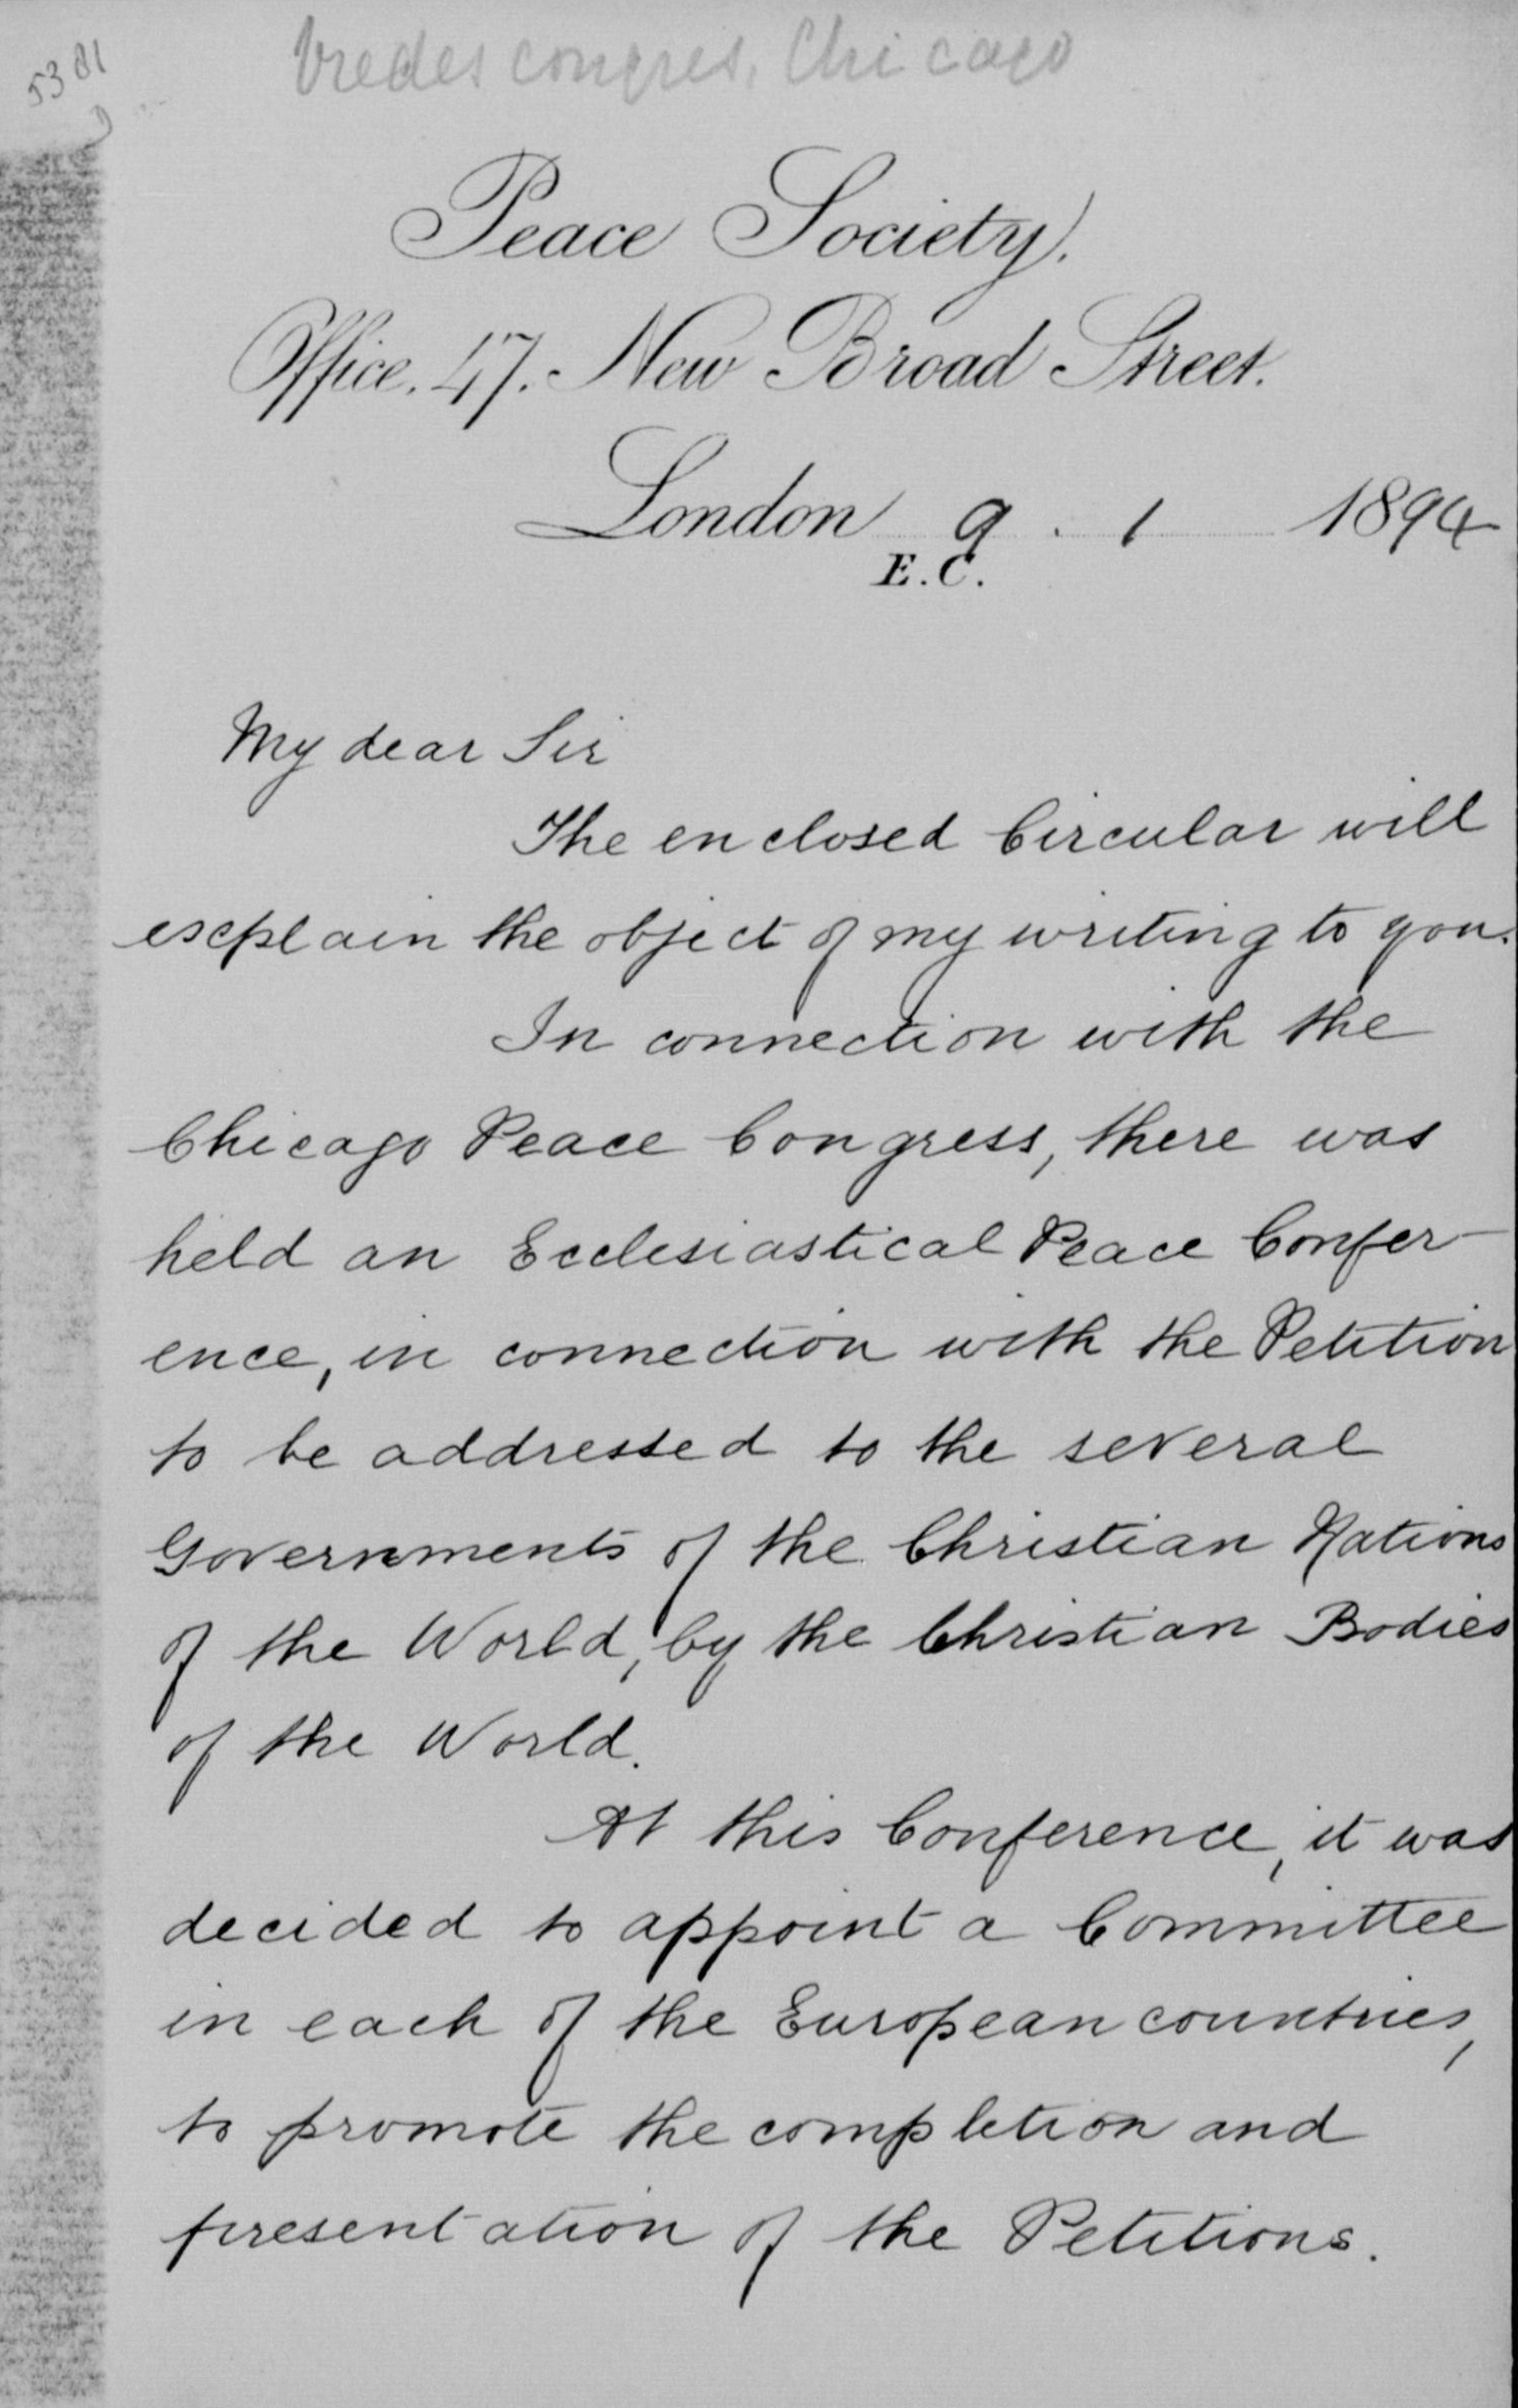 5381
Vredescongres, Chicago
Peace Society.
Office. 47. New Broad Street.
London 9 . 1 1894
E.C.
My dear Sir
The enclosed Circular will
explain the object of my writing to you.
In connection with the
Chicago Peace Congress, there was
held an Ecclesiastical Peace Confer-
ence, in connection with the Petition
to be addressed to the several
Governments of the Christian Nations
of the World, by the Christian Bodies
of the World.
At this Conference, it was
decided to appoint a Committee
in each of the European countries,
to promote the completion and
presentation of the Petitions.